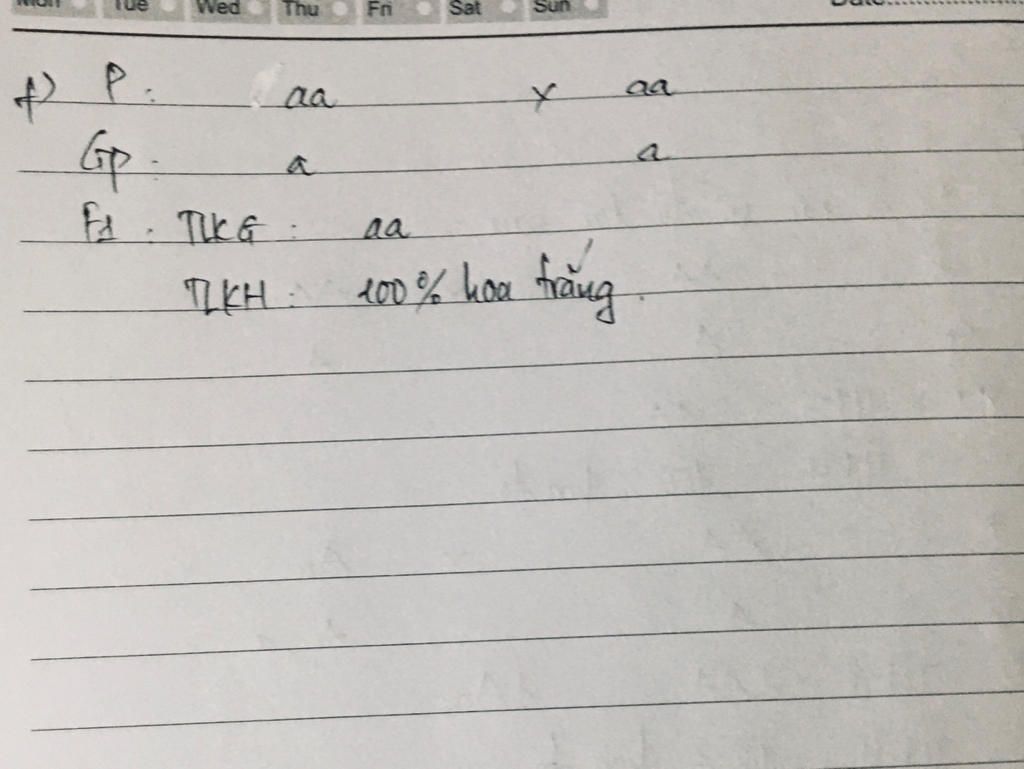 Mon Tue Wed Thu Fri Sat Sun Date
f) P : aa x aa
Gp : a a
F1 : TLKG : aa
TLKH : 100% hoa trắng.